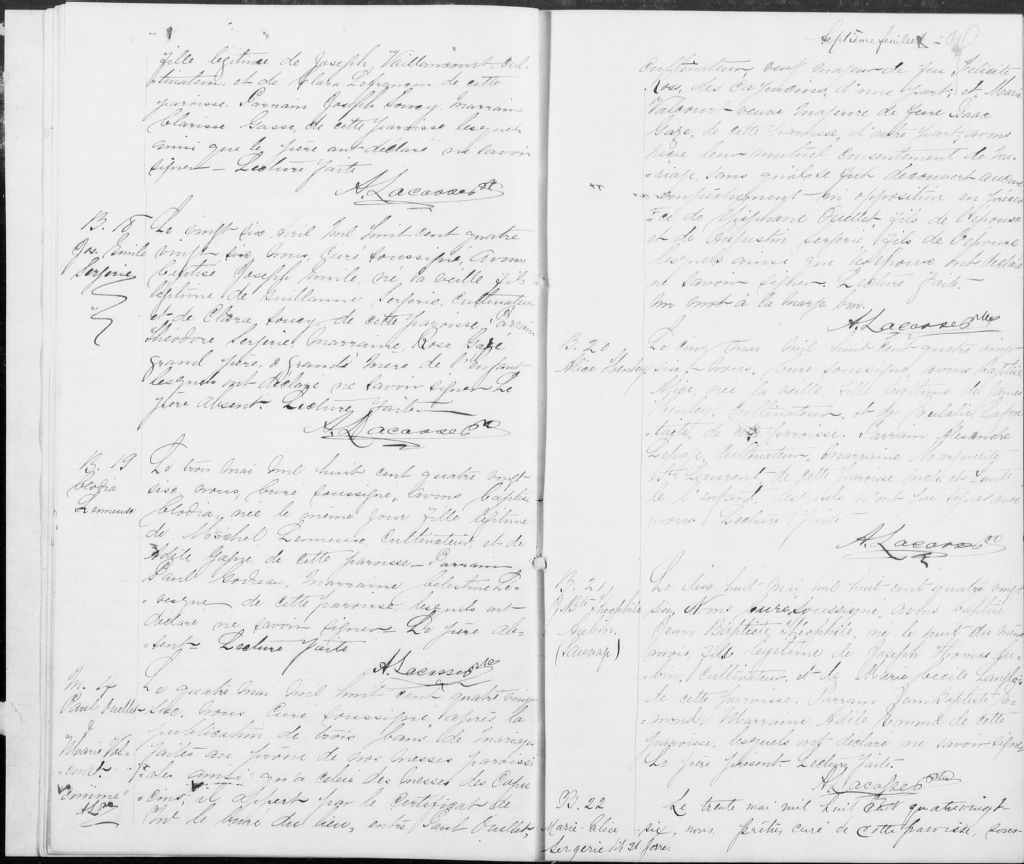 fille légitime de Joseph Vaillancourt cul-
tivateur et de Clara Lefrançois de cette
paroisse. Parrain Joseph Soucy, marraine
Clarisse Gasse, de cette paroisse lesquels
ainsi que le père ont déclaré ne savoir
signer - Lecture faite
A. Lacasse Ptre
B. 18
Jos. Emile
Serjerie
Le vingt six avril mil huit cent quatre
vingt six nous, curé soussigné, avons
baptisé Joseph, Emile, né la veille fils
légitime de Guillaume Serjerie, cultivateur
et de Clara Soucy, de cette paroisse, Parrain
Théodore Serjerie, marraine, Rose Gagé
grand père, & grande mère de l'enfant
lesquels ont déclaré ne savoir signer Le
père absent. Lecture faite
A. Lacasse Ptre
B. 19
Clodia
Lemieuse
Le trois mai mil huit cent quatre vingt
six nous, curé soussigné, avons baptisé
Clodia, née le même jour, fille légitime
de Michel Lemieuse cultivateur et de
Adèle Gagné de cette paroisse - Parrain
Paul Godreau, marraine Célestine Le-
-vesque de cette paroisse, lesquels ont
déclaré ne savoir signer Le père ab-
sent - Lecture faite
A. Lacasse Ptre
M. 17
Paul Ouellet
&
Marie Val-
court
Le quatre mai mil huit cent quatre vingt
six, nous, curé soussigné, après la
publication de trois bans de mariage
faites au prône de nos messes paroissi
ales ainsi qu'à celui des messes des Capu
cins, il appert par le certificat de
Mr le curé du lieu, entre Paul Ouellet,
Septième feuillet
cultivateur, veuf majeur de feu Félicité
Ross, des Capucins, d'une part; et Marie
Valcourt veuve majeure de feue Isaac
Gagé, de cette paroisse, d'autre part; avons
reçu leur mutuel consentement de ma-
riage, sans qu'il se fut découvert aucun
empêchement ni opposition en présen
ce de Epiphane Ouellet, fils de l'époux
et de Augustin Serjerie, fils de l'épouse
lesquels ainsi que les époux ont déclaré
ne savoir signer. Lecture faite.
un mot à la marge
A. Lacasse Ptre
B. 20
Alice
Le cinq mai mil huit cent quatre vingt
six, nous, curé soussigné, avons baptisé
Alice, née la veille fille légitime de
cultivateur, et de
de cette paroisse. Parrain Alexandre
Lepage, cultivateur, marraine Marguerite
St Laurent, de cette paroisse oncle et tante
de l'enfant lesquels n'ont pu signer avec
nous. Lecture faite
A. Lacasse Ptre
B. 21
J. Bte Théophile
Aubin
(Sauvage)
Le dix huit mai mil huit cent quatre vingt
six, Nous curé soussigné, avons baptisé
Jean Baptiste, Théophile, né le huit du même
mois, fils légitime de Joseph Thomas Au-
bin, cultivateur, et de Marie Cécile Langlais
de cette paroisse. Parrain Jean Baptiste E-
mond, Marraine Adèle Emond de cette
paroisse, lesquels ont déclaré ne savoir signer
Le père présent. Lecture faite.
A. Lacasse Ptre
B. 22
Marie-Elise
Sergerie dit St. Jorre.
Le trente mai mil huit cent quatrevingt
six, nous, prêtre, curé de cette paroisse, sous-